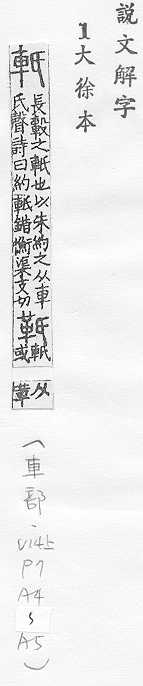 說文解字
1大徐本
軝
長轂之軝也以朱約之从車
氏聲詩曰約軝錯衡渠支切
𩉬
軝
或
从
革
(車部、
V14上
P7
A4
S
A5)